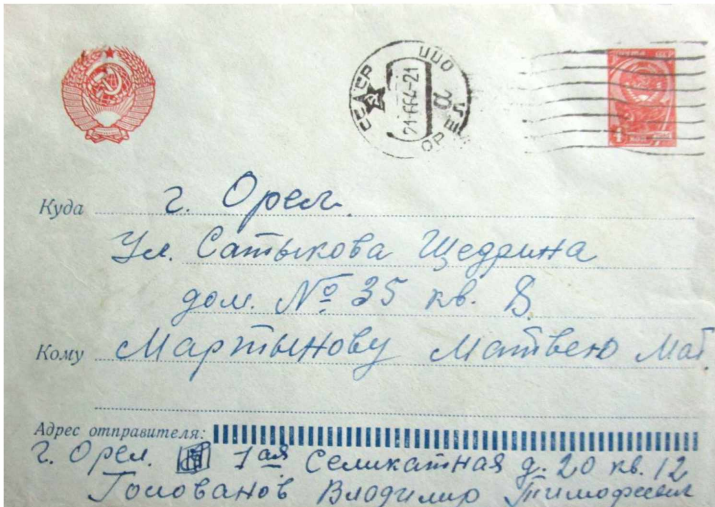 СССР ЦПО
21-6 64-21
ОРЕЛ
Куда г. Орел.
Ул. Сатыкова Щедрина
дом. № 35 кв. 8.
Кому Мартынову Матвею Мат
Адрес отправителя:
г. Орел. 1ая Селикатная д. 20 кв. 12
Голованов Владимир Тимофеевич